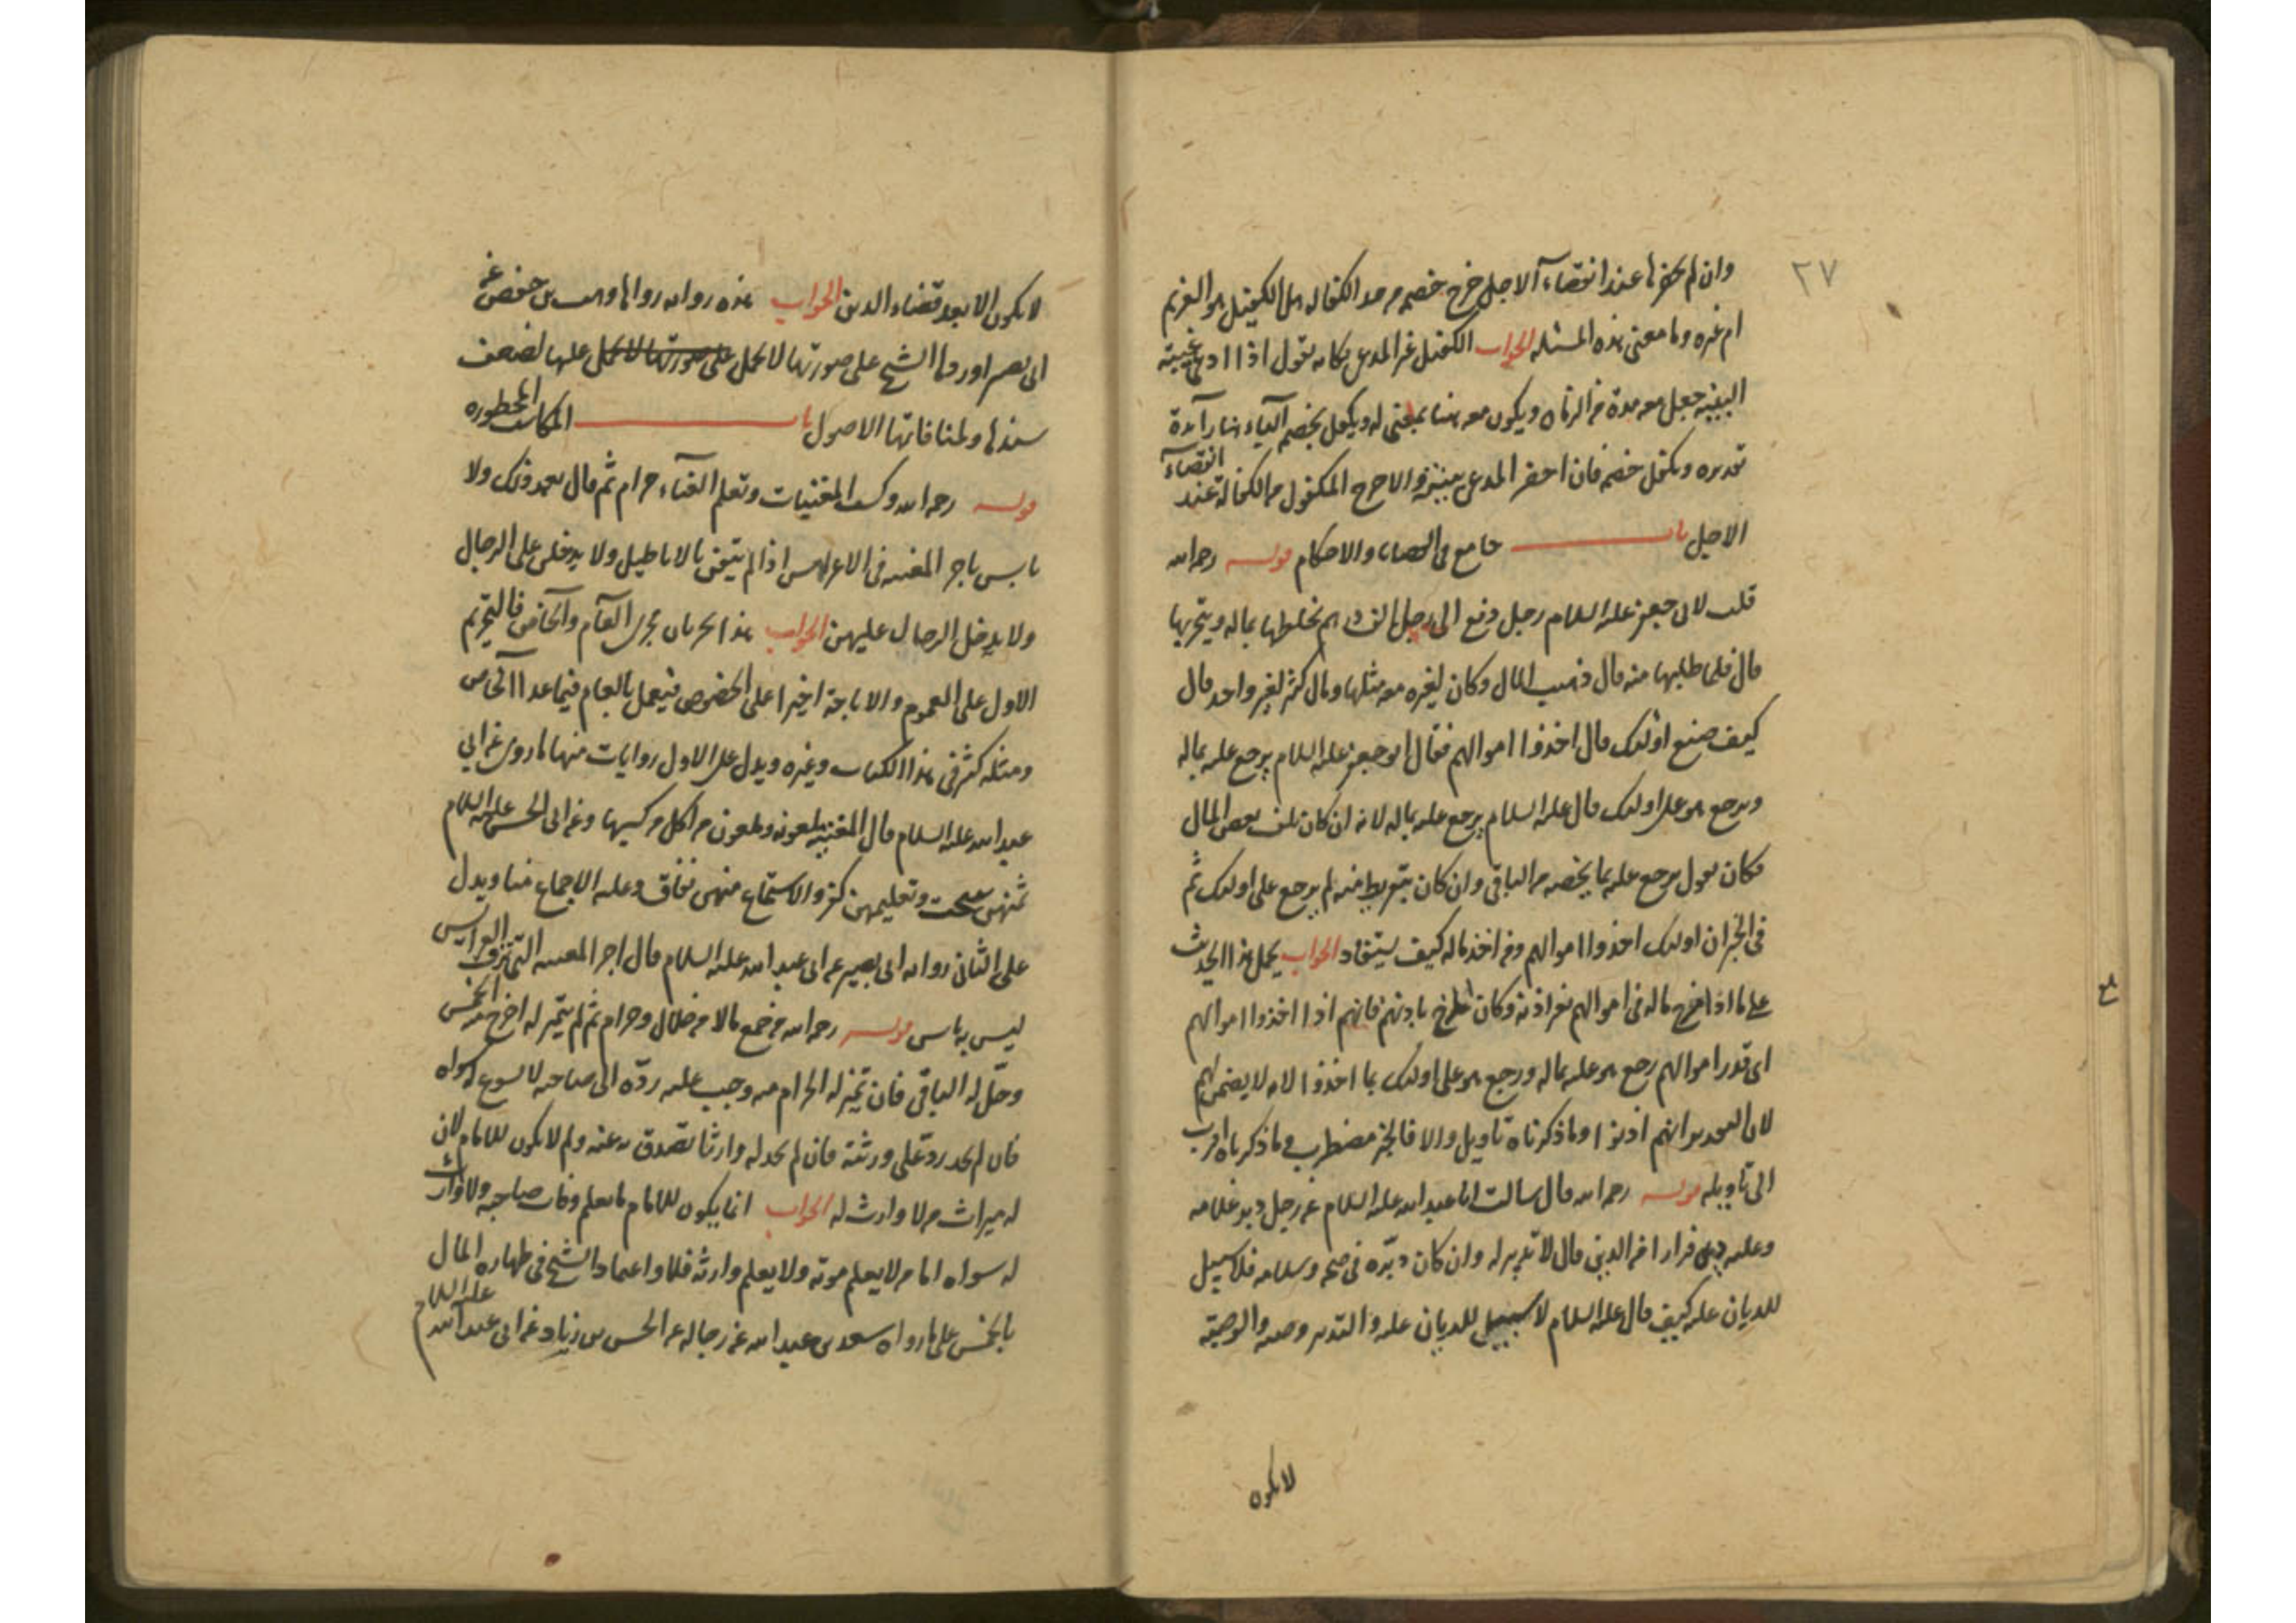 ٢٧
وان لم يحضرها عند انقضاء الاجل خرج خصمه من حد الكفاله هل الكفيل هو الغريم
ام غيره وما معنى هذه المسئله الجواب الكفيل غير المدعي فكانه يقول اذا ادعى غيبة
البينة جعل معه مدة من الزمان ويكون معه هنا بمعنى له ويكفل بخصمه الباء هنا زائدة
تقديره ويكفل خصمه فان احضر المدعي بينته والا خرج المكفول من الكفالة عند انقضاء
الاجل باب جامع في القضايا والاحكام قوله رحمه الله
قلت لابي جعفر عليه السلام رجل دفع الى رجل الف درهم يخلطها بماله ويتجر بها
قال فلما طلبها منه قال ذهب المال وكان لغيره معه مثلها ومال كثير لغير واحد قال
كيف صنع اولئك قال اخذوا اموالهم فقال ابو جعفر عليه السلام يرجع عليه بماله
ويرجع هو على اولئك قال عليه السلام يرجع عليه بماله لانه ان كان تلف بعض المال
فكان يقول يرجع عليه بما يخصه من الباقي وان كان بتفريط منه لم يرجع على اولئك ثم
في الخبر ان اولئك اخذوا اموالهم ومن اخذ ماله كيف يستعاد الجواب يحمل هذا الحديث
على ما اذا مزج ماله في اموالهم بغير اذنه وكان المزج باذنهم فانهم اذا اخذوا اموالهم
اي قدر اموالهم رجع هو عليه بماله ورجع هو على اولئك بما اخذوا لانه لا يضمن لهم
لان التقدير انهم اذنوا وما ذكرناه تاويل والا فالخبر مضطرب وما ذكرناه اقرب
الى تأويله قوله رحمه الله قال سالت ابا عبد الله عليه السلام عن رجل دبر غلامه
وعليه دين فرارا من الدين قال لا تدبير له وان كان دبّره في صحة وسلامة فلا سبيل
للديان عليه كيف قال عليه السلام لا سبيل للديان عليه والتدبير وصية والوصية
لا يكون
لا يكون الا بعد قضاء الدين الجواب هذه رواية رواها وهيب بن حفص عن
ابي بصير اوردها الشيخ على صورتها لا يحمل على صورتها لا يحمل عليها لضعف
سندها ولمنافاتها الاصول باب المكاسب المحظوره
قوله رحمه الله وكسب المغنيات وتعلم الغناء حرام ثم قال بعد ذلك ولا
باس باجر المغنيه في الاعراس اذا لم يتغن بالاباطيل ولا يدخلن على الرجال
ولا يدخل الرجال عليهن الجواب هذا يجريان مجرى العام والخاص فالتحريم
الاول على العموم والاباحة اخيرا على الخصوص فيعمل بالعام فيما عدا الخاص
ومثله كثير في هذا الكتاب وغيره ويدل على الاول روايات منها ما روي عن ابي
عبد الله عليه السلام قال المغنية ملعونه وملعون من اكل من كسبها وعن ابي الحسن عليه السلام
ثمنهن سحت وتعليمهن كفر والاستماع منهن نفاق وعليه الاجماع منا ويدل
على الثاني رواية ابي بصير عن ابي عبد الله عليه السلام قال اجر المغنيه التي تزف العرايس
ليس به باس قوله رحمه الله من جمع مالا من حلال وحرام ثم لم يتميز له اخرج منه الخمس
وحلّ له الباقي فان تميز له الحرام منه وجب عليه ردّه الى صاحبه لا يسوغ له سواه
فان لم يجد ردّه على ورثته فان لم يجد له وارثا تصدق به عنه ولم لا يكون للامام لان
له ميراث من لا وارث له الجواب انما يكون للامام ما يعلم وفات صاحبه ولا وارث
له سواه اما من لا يعلم موته ولا يعلم وارثه فلا واعتماد الشيخ في طهاره المال
بالخمس على ما رواه سعد بن عبد الله عن رجاله عن الحسن بن زياد عن ابي عبد الله عليه السلام